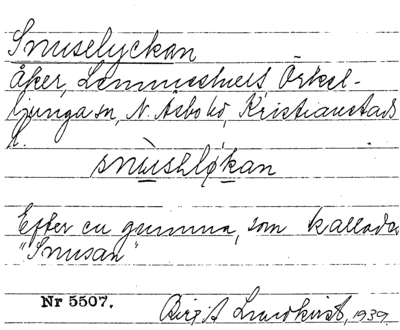 Snuselyckan
Åker, Lemmeshult, Örkel-
ljunga sn, N. Åsbo hd, Kristianstads
l.
Efter en gumma, som kallades
"Snusan"
Nr 5507.
Birgit Lundkvist, 1939.